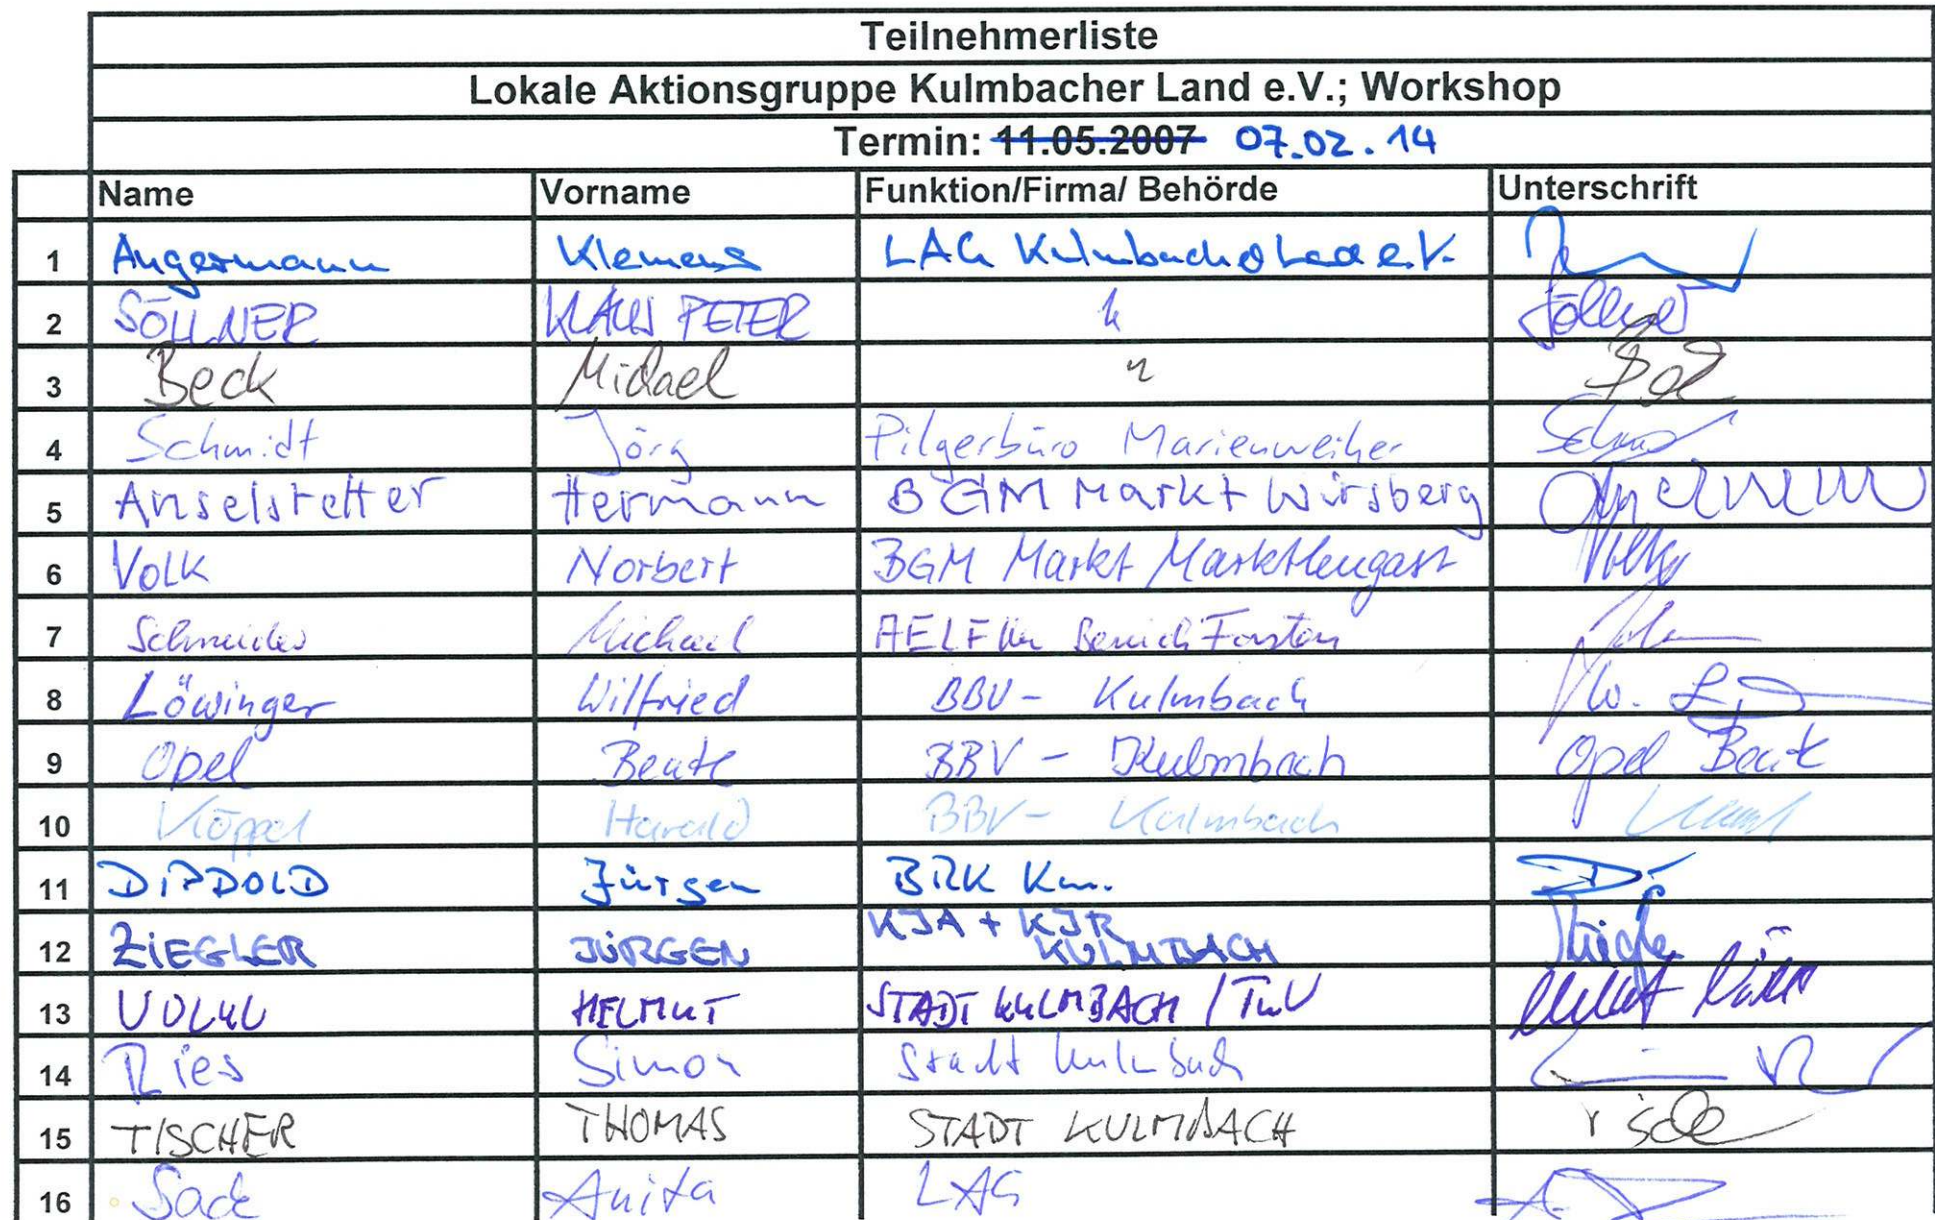 Teilnehmerliste
Lokale Aktionsgruppe Kulmbacher Land e.V.; Workshop
Termin: 11.05.2007 07.02.14
Name Vorname Funktion/Firma/ Behörde Unterschrift
1 Angermann Klemens LAG Kulmbacher Land e.V.
2 SÖLLNER KLAUS PETER " Söllner
3 Beck Michael " Beck
4 Schmidt Jörg Pilgerbüro Marienweiher
5 Anselstetter Hermann BGM Markt Wirsberg
6 Volk Norbert BGM Markt Marktleugast Volk
7 Schneider Michael AELF Ku Bereich Forsten
8 Löwinger Wilfried BBV - Kulmbach W.
9 Opel Beate BBV - Kulmbach Opel Beate
10 Köppel Harald BBV - Kulmbach
11 DIPPOLD Jürgen BRK Ku.
12 ZIEGLER JÜRGEN KJA + KJR
KULMBACH
13 VÖLKL HELMUT STADT KULMBACH / TuV
14 Ries Simon Stadt Kulmbach
15 TISCHER THOMAS STADT KULMBACH
16 Sack Anita LAG